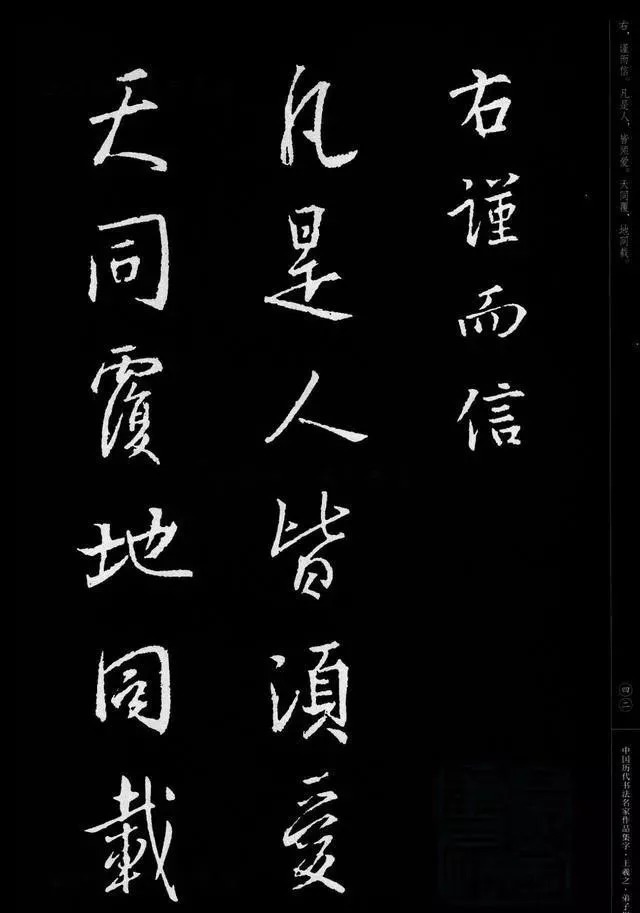 右，谨而信。凡是人，皆须爱。天同覆，地同载。
右謹而信
凡是人皆須愛
天同覆地同載
四二
中国历代书法名家作品集字·王羲之·弟子